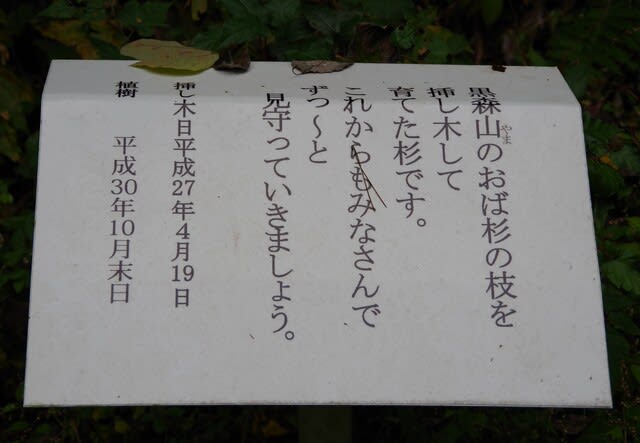 黒森山のおば杉の枝を
やま
挿し木して
育てた杉です。
これからもみなさんで
ずっ～と
見守っていきましょう。
挿し木日平成27年4月19日
植樹　平成30年10月末日